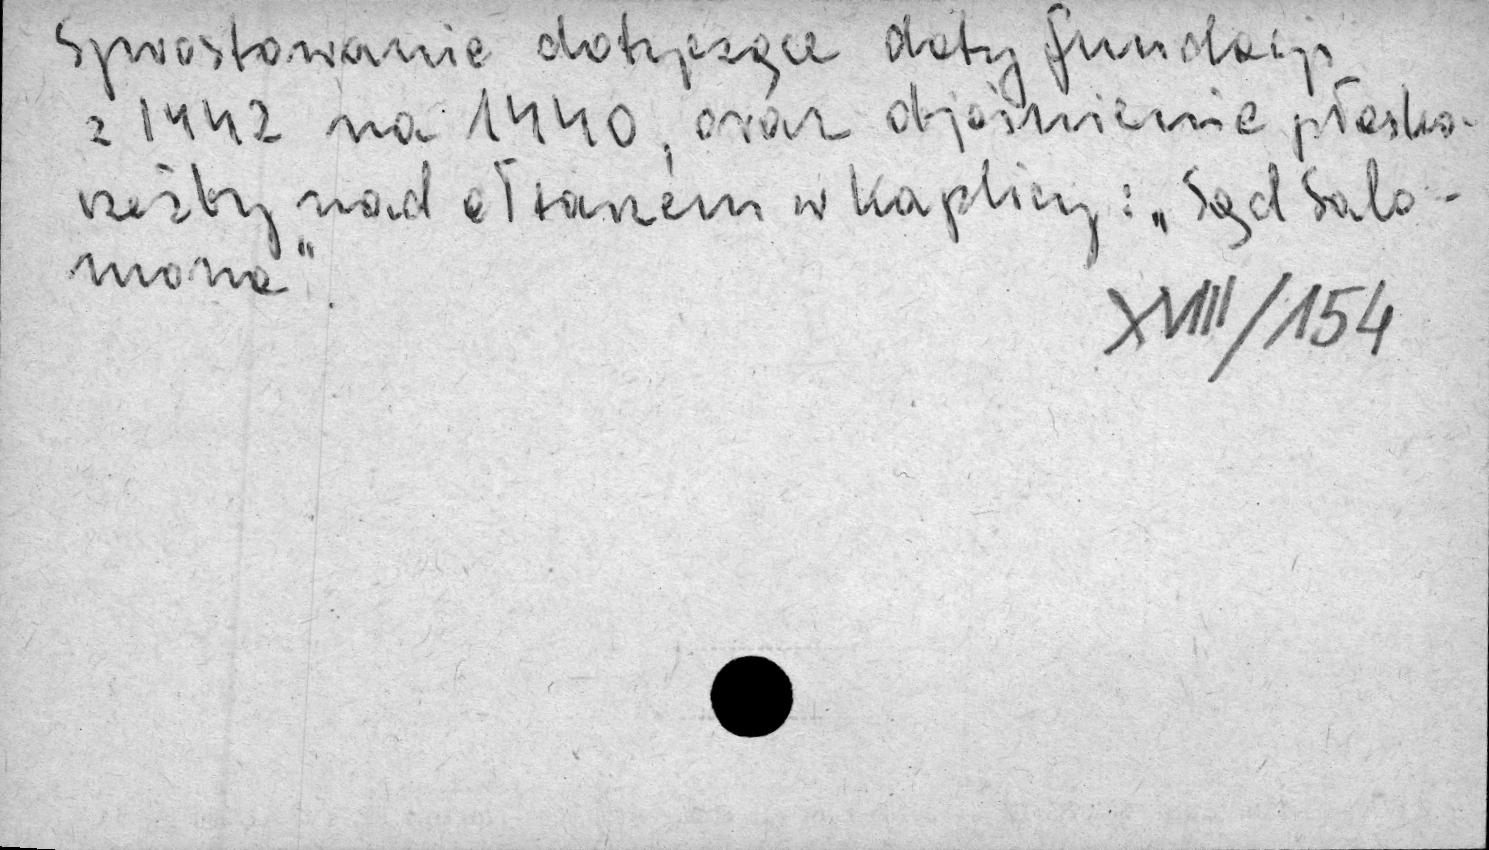 Sprostowanie dotyczące daty fundacji
z 1442 na 1440, oraz objaśnienie płasko-
rzeźby nad ołtarzem w kaplicy: „Sąd Salo-
mona".
XVIII/154